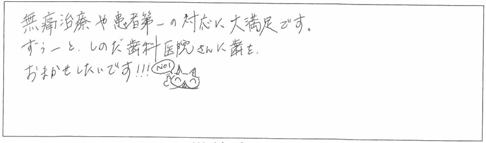 無痛治療や患者第一の対応に大満足です。
ずぅーと、しのだ歯科医院さんに歯を、
おまかせしたいです!!! NO1